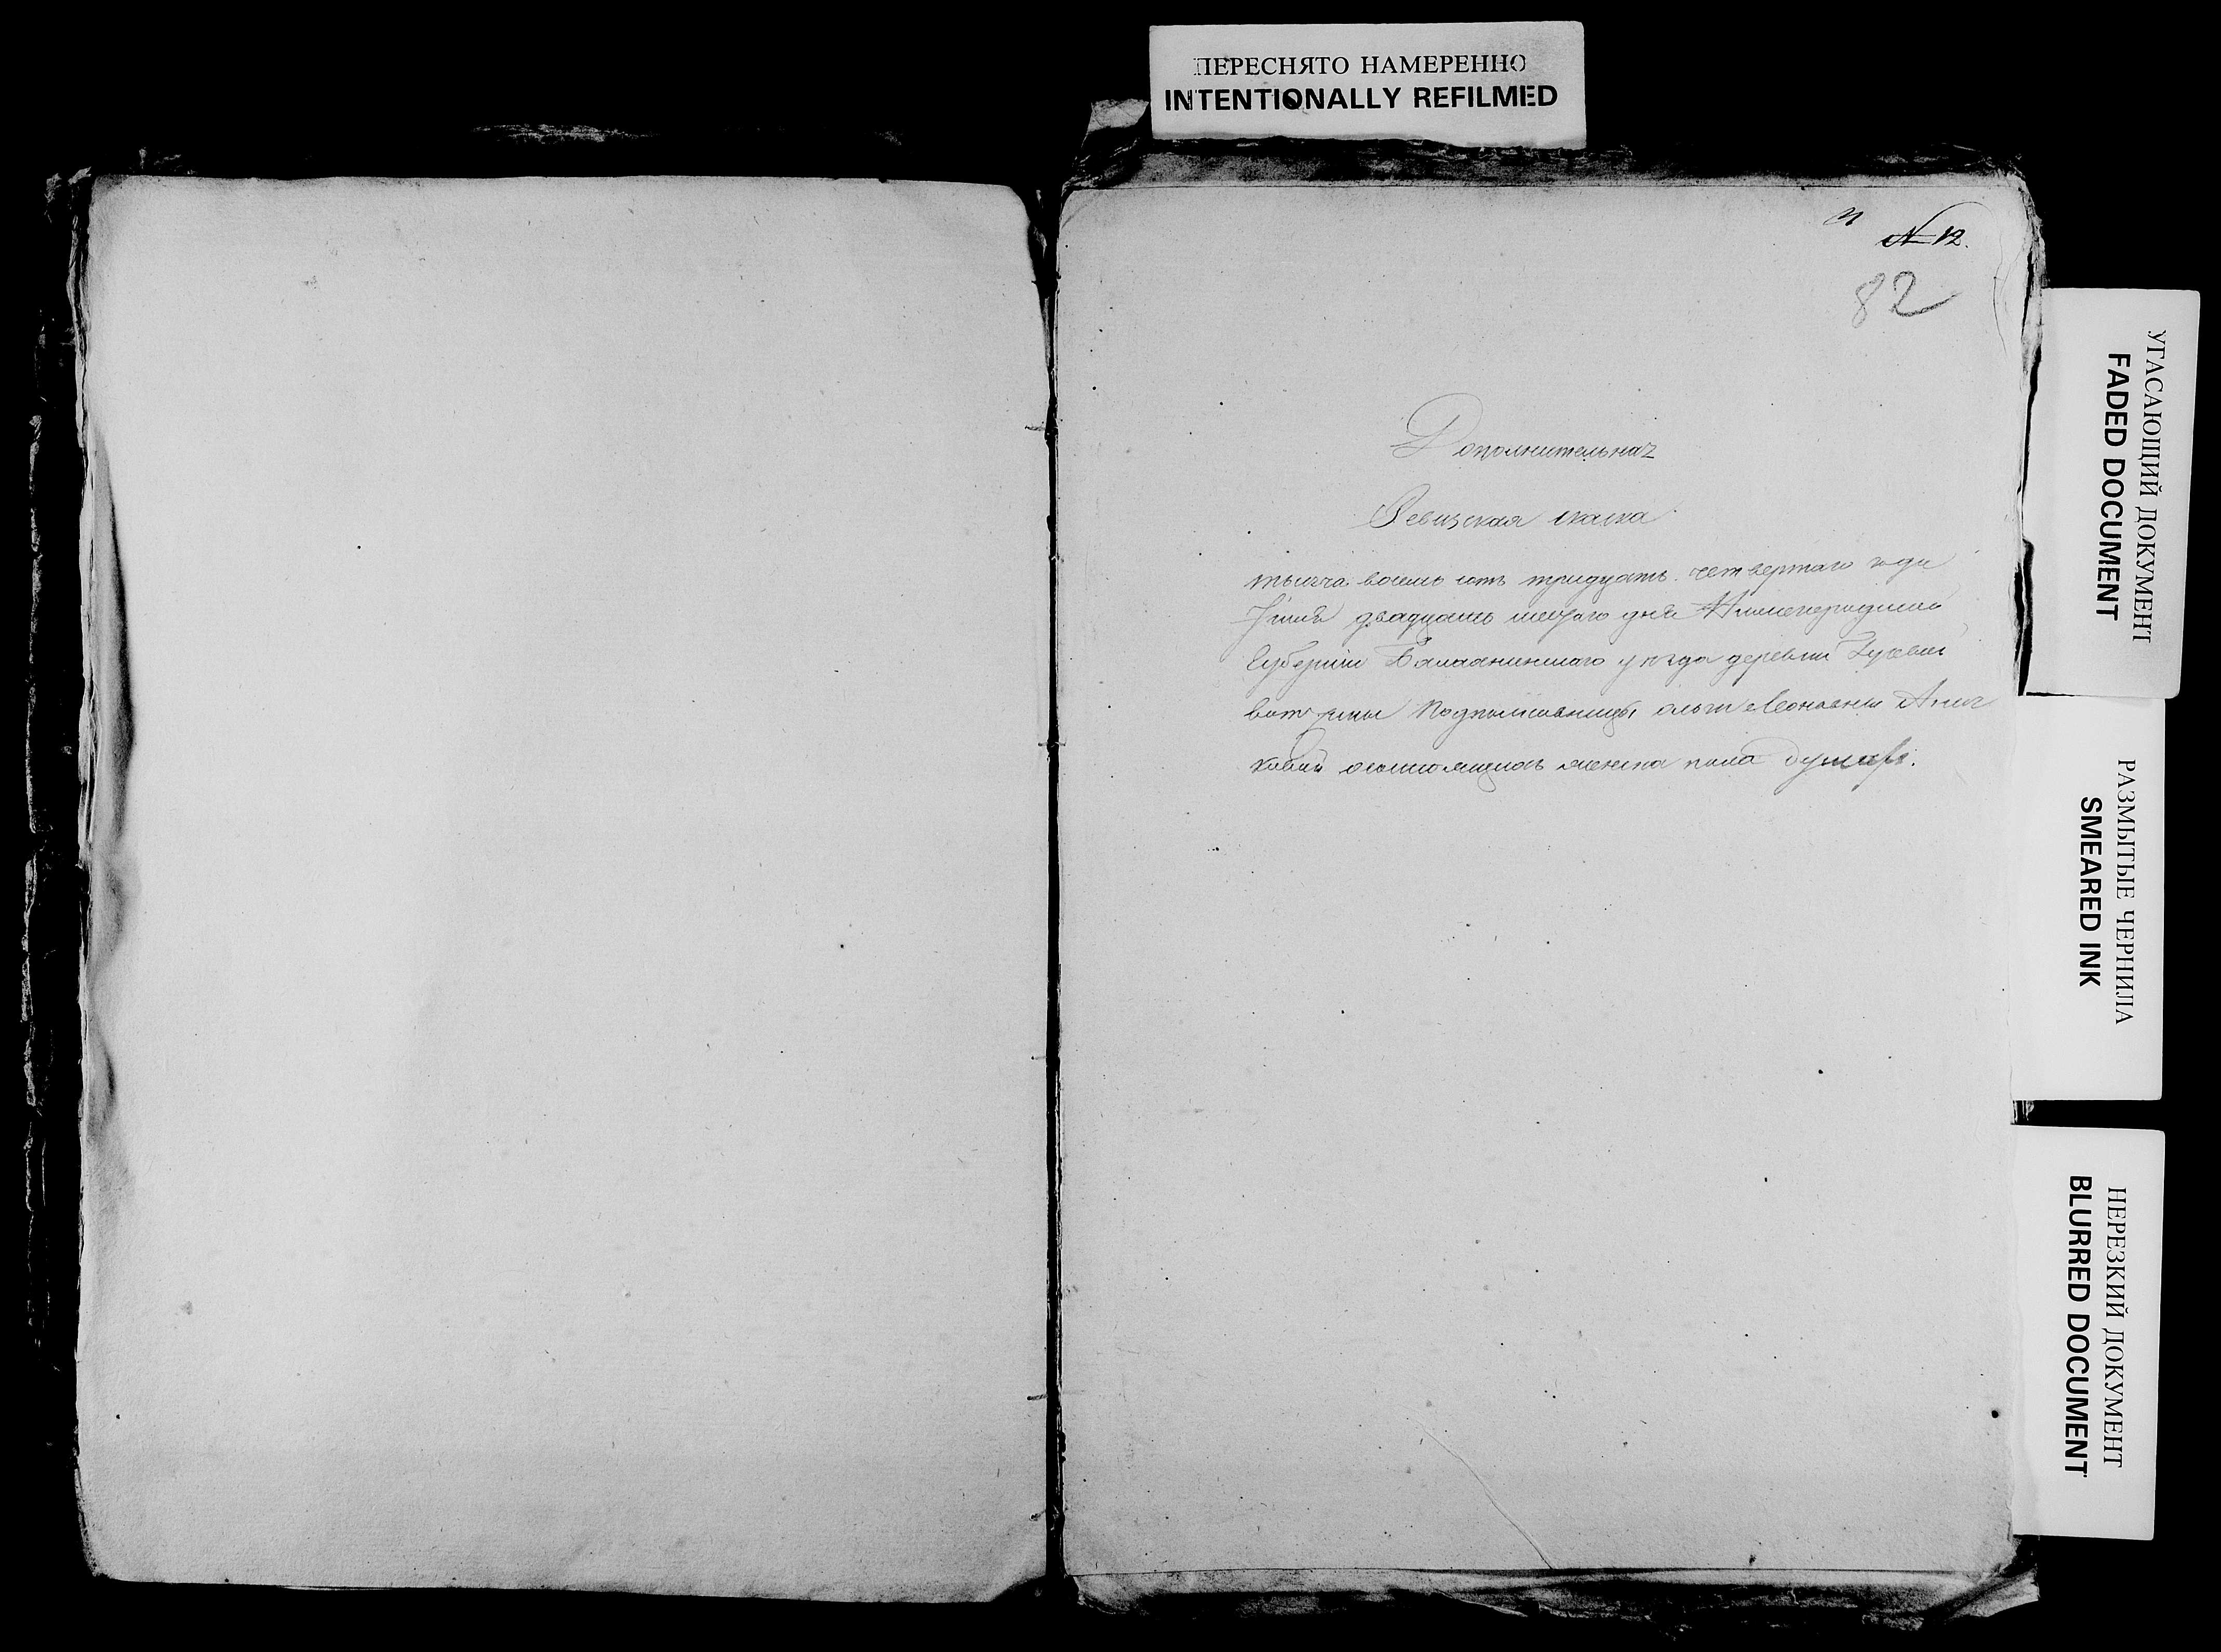 ПЕРЕСНЯТО НАМЕРЕННО
INTENTIONALLY REFILMED
№ 12.
82
Дополнительная
Ревизская сказка
тысяча восемь сотъ тридцать четвертаго года
двадцать дня Нижегородской
Губернии Балахнинскаго уезда деревни
вотчины Подполковницы Ольги
женска пола душахъ.
УГАСАЮЩИЙ ДОКУМЕНТ
FADED DOCUMENT
РАЗМЫТЫЕ ЧЕРНИЛА
SMEARED INK
НЕРЕЗКИЙ ДОКУМЕНТ
BLURRED DOCUMENT